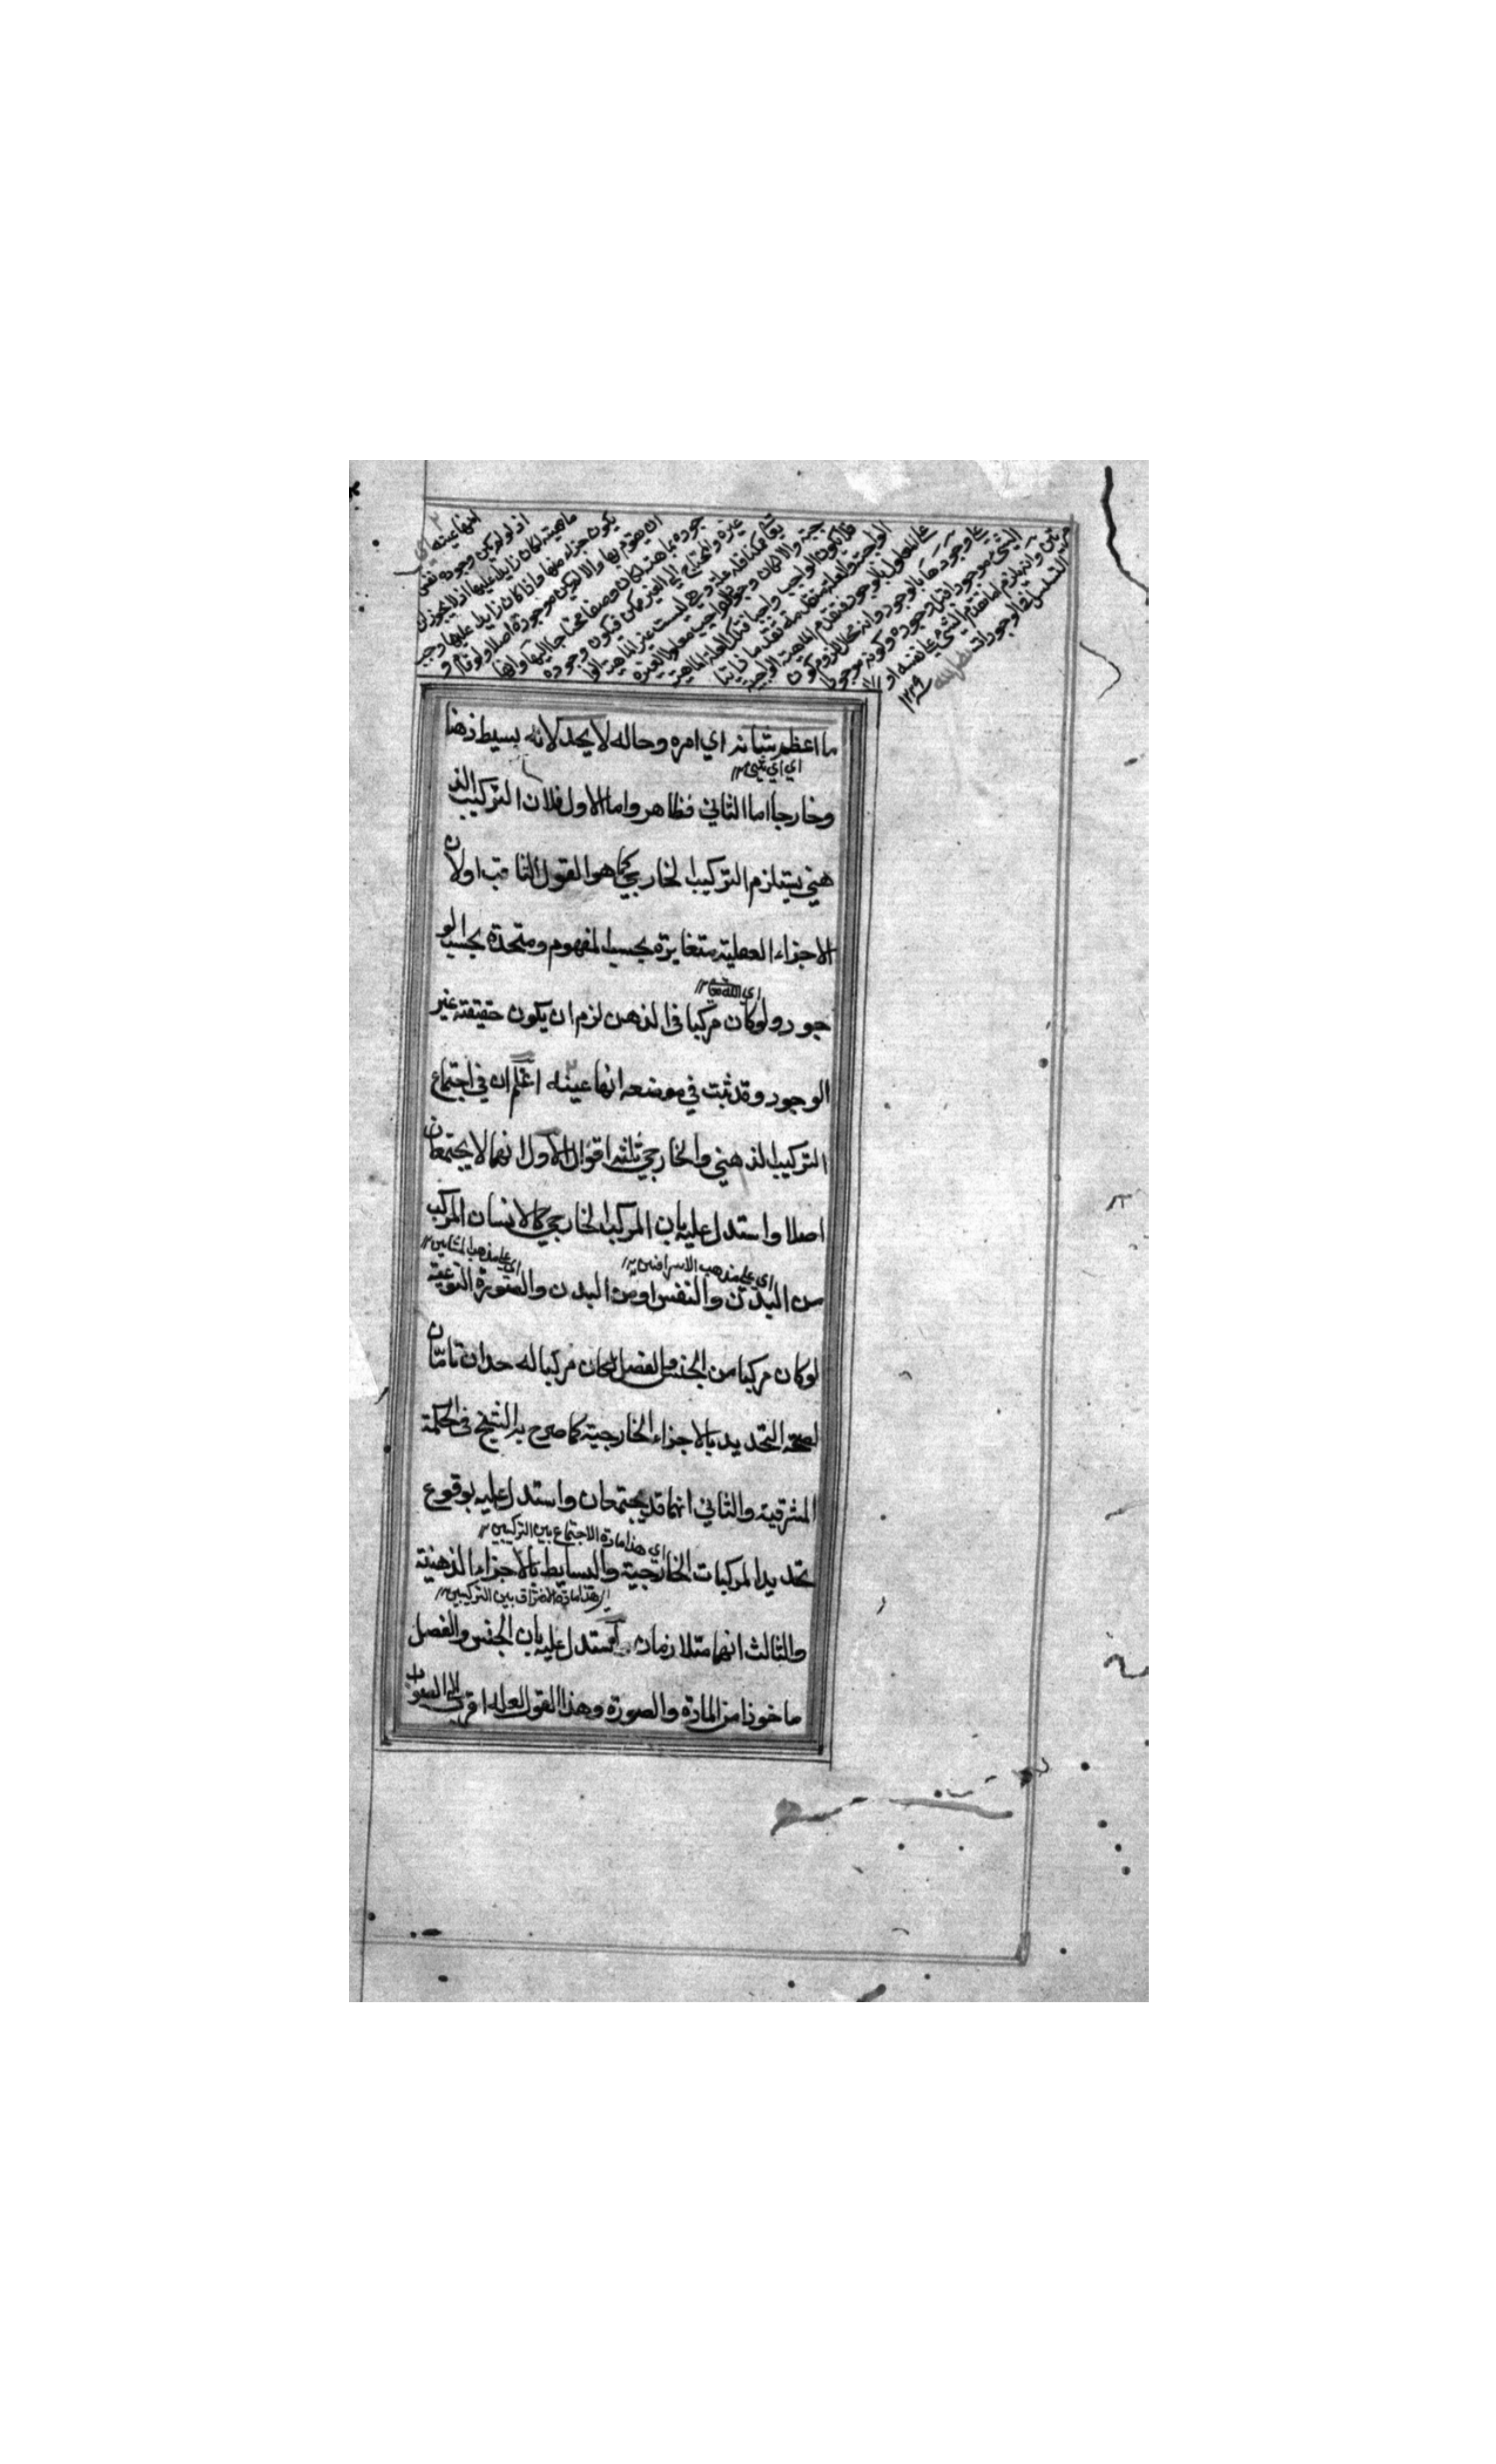 انها عينه اي
اذ لو لم يكن وجوده نفس
ماهيته لكان زايدا عليها اذ لا يجوز ان
يكون جزء منها واذا كان زايدا عليها وجب
ان يقوم بها والا لم يكن موجودة اصلا ولو قام و
جوده بماهيته لكان وصفا محتاجا اليها وانها
غيره والمحتاج الى الغير ممكن فيكون وجوده
تعالى ممكنا فله علة وهي ليست غير الماهية والا
جبة والا لكان وجود الواجب معلولا لغيره
فلا يكون الواجب واجبا فتلك العلة الماهية
الواجبة والعلة متقدمة تقدما ذاتيا
على المعلول بالوجود فتقدم الماهية الواجبية
على وجودها بالوجود وانه محال للزوم كون
الشيء موجودا قبل وجوده وكونه موجودا
مرتين وانه يلزم اما تقدم الشيء على نفسه او
التسلسل في الوجودات
ما اعظم شانه اي امره وحاله لا يحد لانه بسيط ذهنا
اي اي شيء ١٢
وخارجا اما الثاني فظاهر واما الاول فلان التركيب الذ
هني يستلزم التركيب الخارجي كما هو القول الثاقب اولان
الاجزاء العقلية متغايرة بحسب المفهوم ومتحدة بحسب الو
اي الله تعا ١٢
جود ولو كان مركبا في الذهن لزم ان يكون حقيقته غير
الوجود وقد ثبت في موضعه انها عينه اعلم ان في اجتماع
التركيب الذهني والخارجي ثلثة اقوال الاول انهما لا يجتمعان
اصلا واستدل عليه بان المركب الخارجي كالانسان المركب
اي على مذهب الاشراقين ١٢ اي على مذهب المشايين ١٢
من البدن والنفس او من البدن والصورة النوعية
لو كان مركبا من الجنس والفصل لكان مركبا له حدان تامان
لصحة التحديد بالاجزاء الخارجية كما صرح به الشيخ في الحكمة
المشرقية والثاني انهما قد يجتمعان واستدل عليه بوقوع
اي هذا مادة الاجتماع بين التركيبين ١٢
تحديد المركبات الخارجية والبسايط بالاجزاء الذهنية
اي هذا مادة الافتراق بين التركيبين ١٢
والثالث انهما متلازمان واستدل عليه بان الجنس والفصل
ماخوذا من المادة والصورة وهذا القول لعله اقرب الى الصواب